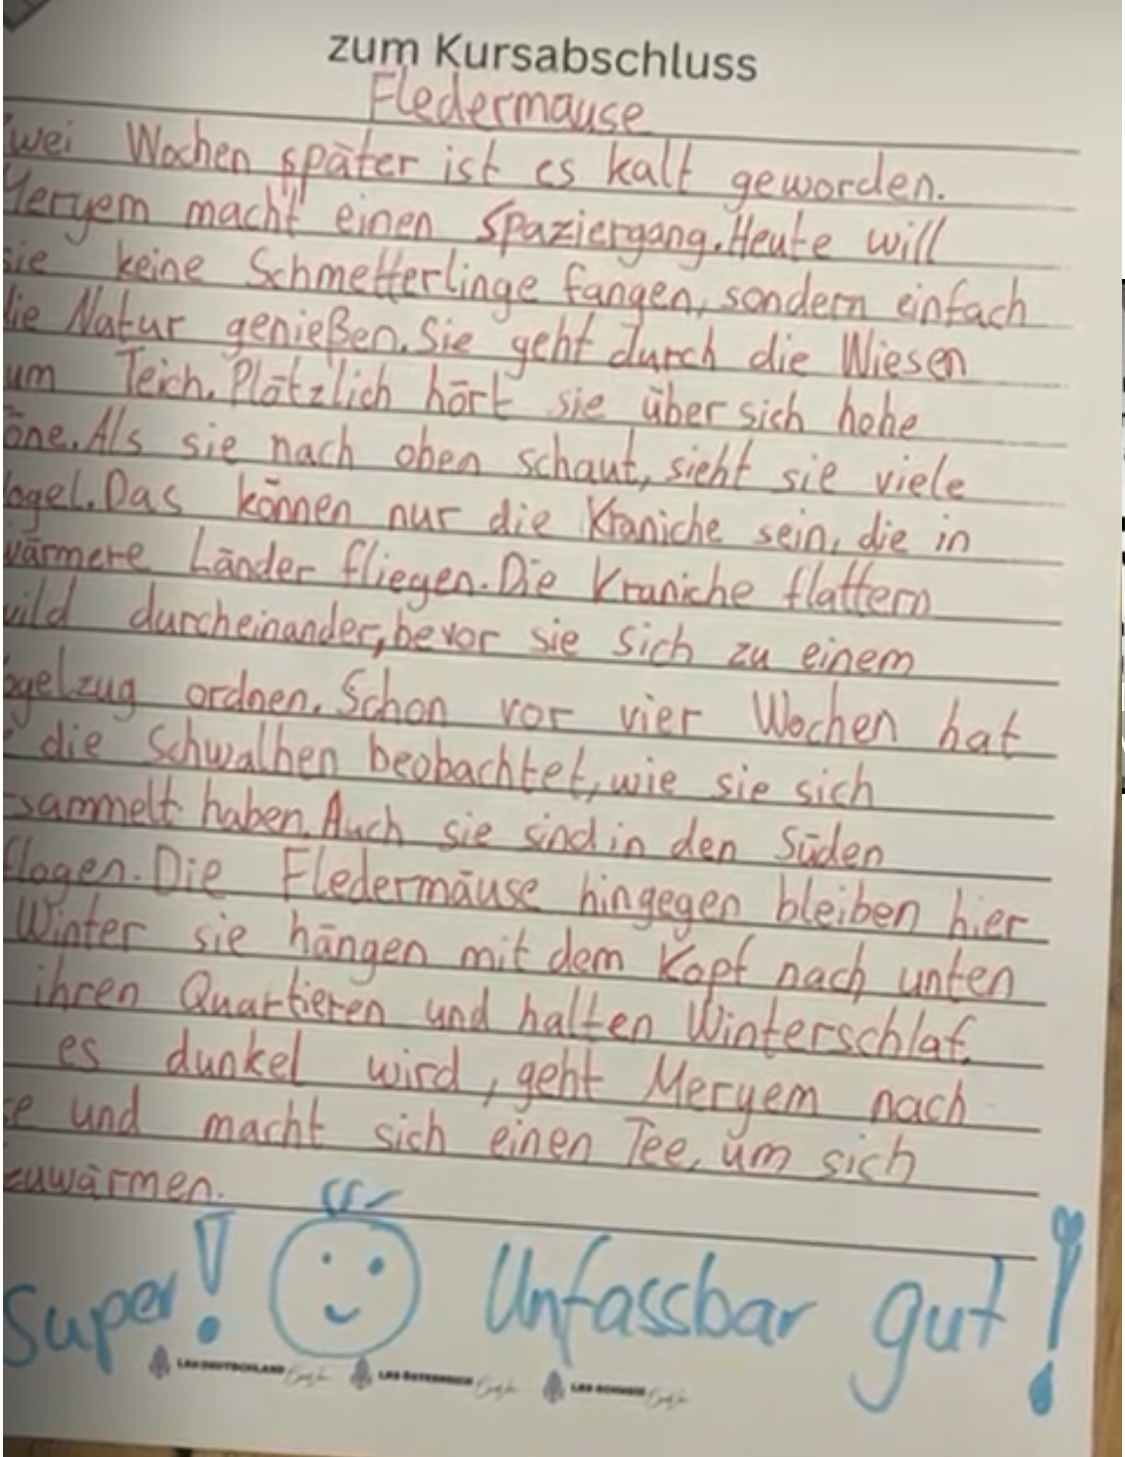 zum Kursabschluss
Fledermäuse
Zwei Wochen später ist es kalt geworden.
Meryem macht einen Spaziergang. Heute will
sie keine Schmetterlinge fangen, sondern einfach
die Natur genießen. Sie geht durch die Wiesen
um Teich. Plötzlich hört sie über sich hohe
öne. Als sie nach oben schaut, sieht sie viele
ögel. Das können nur die Kraniche sein, die in
wärmere Länder fliegen. Die Kraniche flattern
wild durcheinander, bevor sie sich zu einem
ogelzug ordnen. Schon vor vier Wochen hat
die Schwalben beobachtet, wie sie sich
sammelt haben. Auch sie sind in den Süden
flogen. Die Fledermäuse hingegen bleiben hier
Winter sie hängen mit dem Kopf nach unten
ihren Quartieren und halten Winterschlaf.
es dunkel wird, geht Meryem nach
se und macht sich einen Tee, um sich
zuwärmen.
Super! Unfassbar gut!
LRS DEUTSCHLAND LRS ÖSTERREICH LRS SCHWEIZ